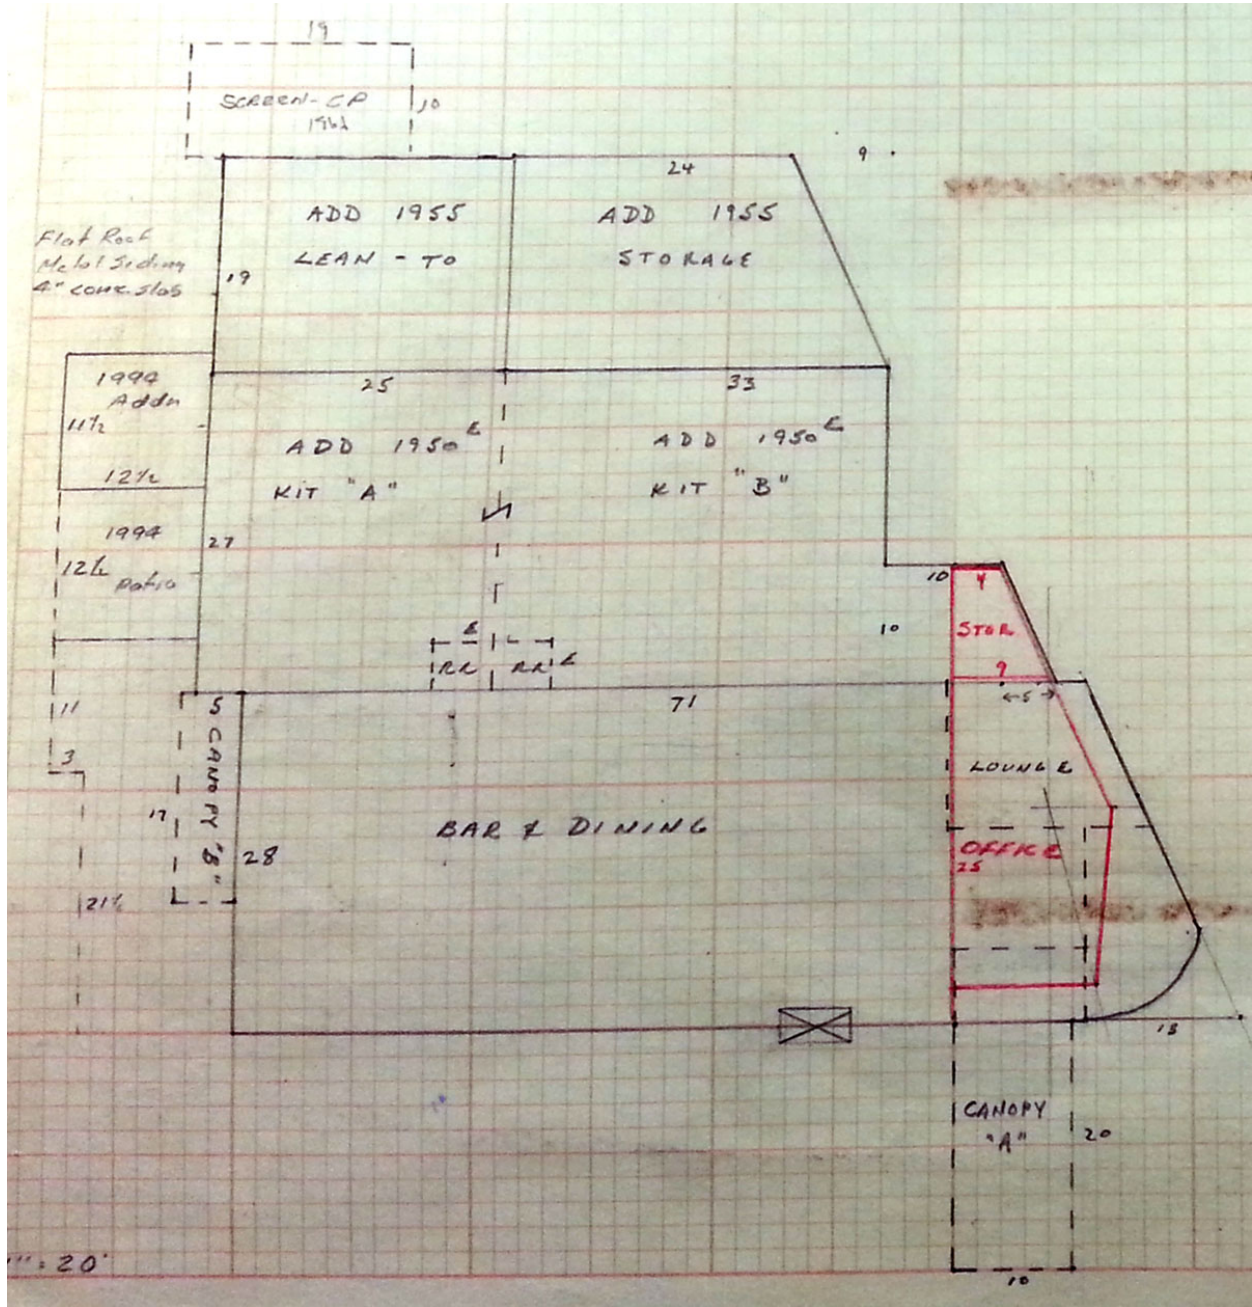 19
SCREEN-CP
10
24
9
ADD 1955
LEAN-TO
ADD 1955
STORAGE
Flat Roof
Metal Siding
4" conc slab
19
25
33
1994
Addn
11½
12½
ADD 1950 E
KIT "A"
ADD 1950 E
KIT "B"
1994
patio
12½
27
10
4
10
STOR
9
←5→
E
RR
RR E
71
5
CANOPY "B"
11
3
17
21½
28
BAR & DINING
LOUNGE
OFFICE
25
18
CANOPY
"A"
20
10
1" = 20'